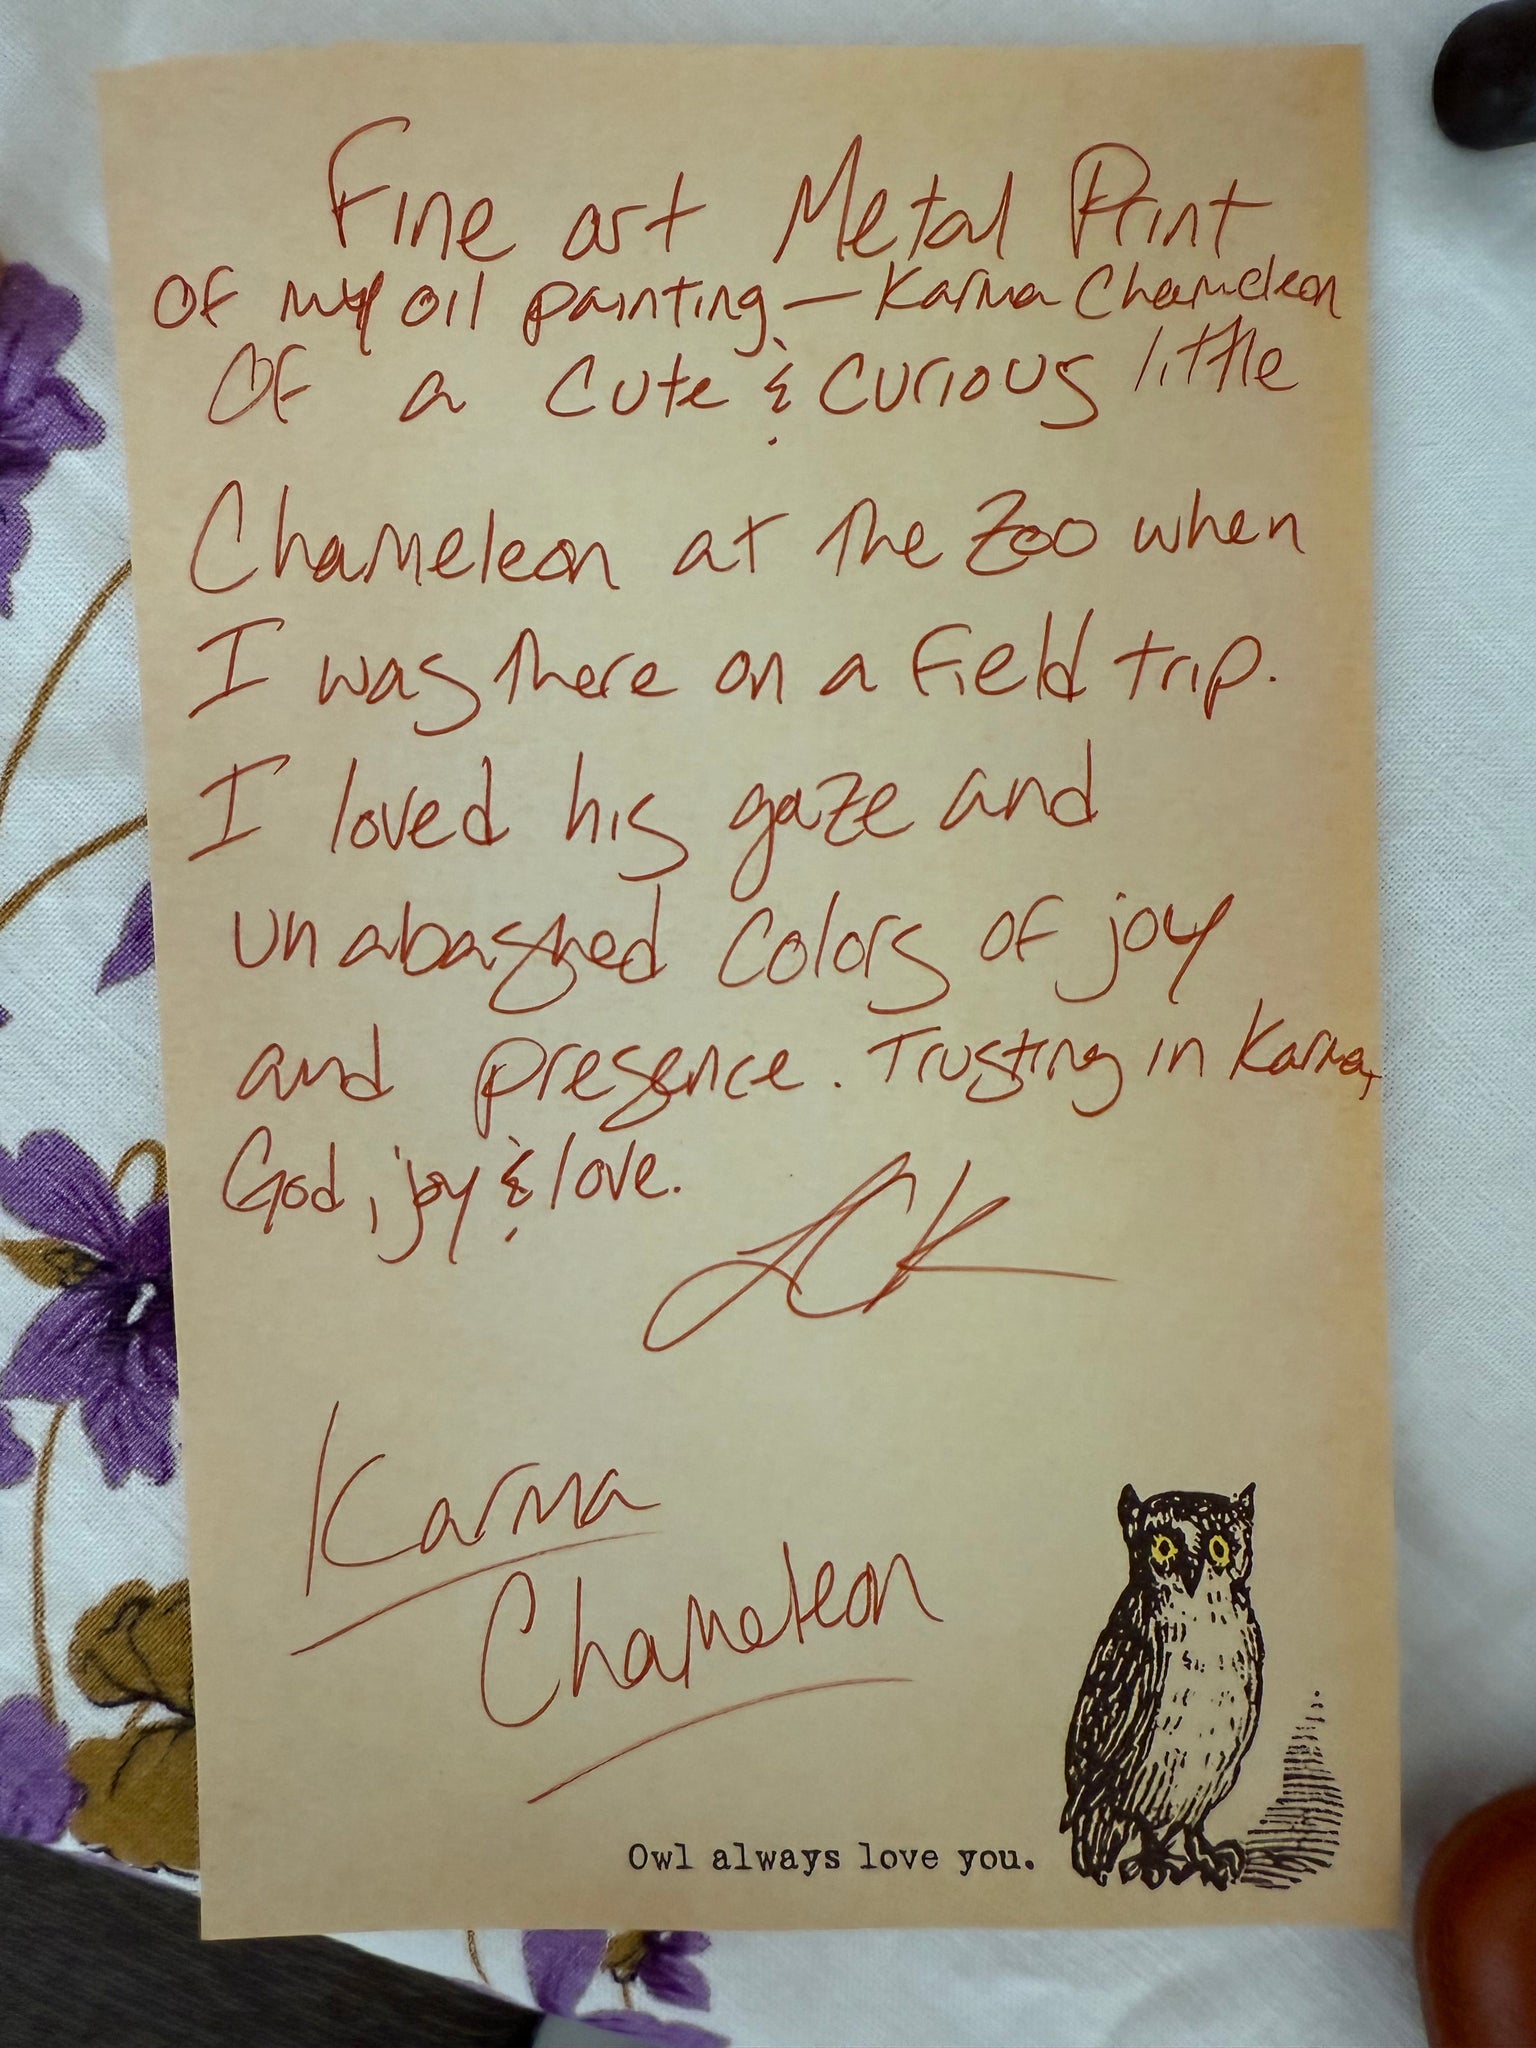 Fine art Metal Print
of my oil painting — Karma Chameleon
Of a cute & curious little
Chameleon at the Zoo when
I was there on a field trip.
I loved his gaze and
unabashed colors of joy
and presence. Trusting in Karma,
God, joy & love.
LCK
Karma
Chameleon
Owl always love you.